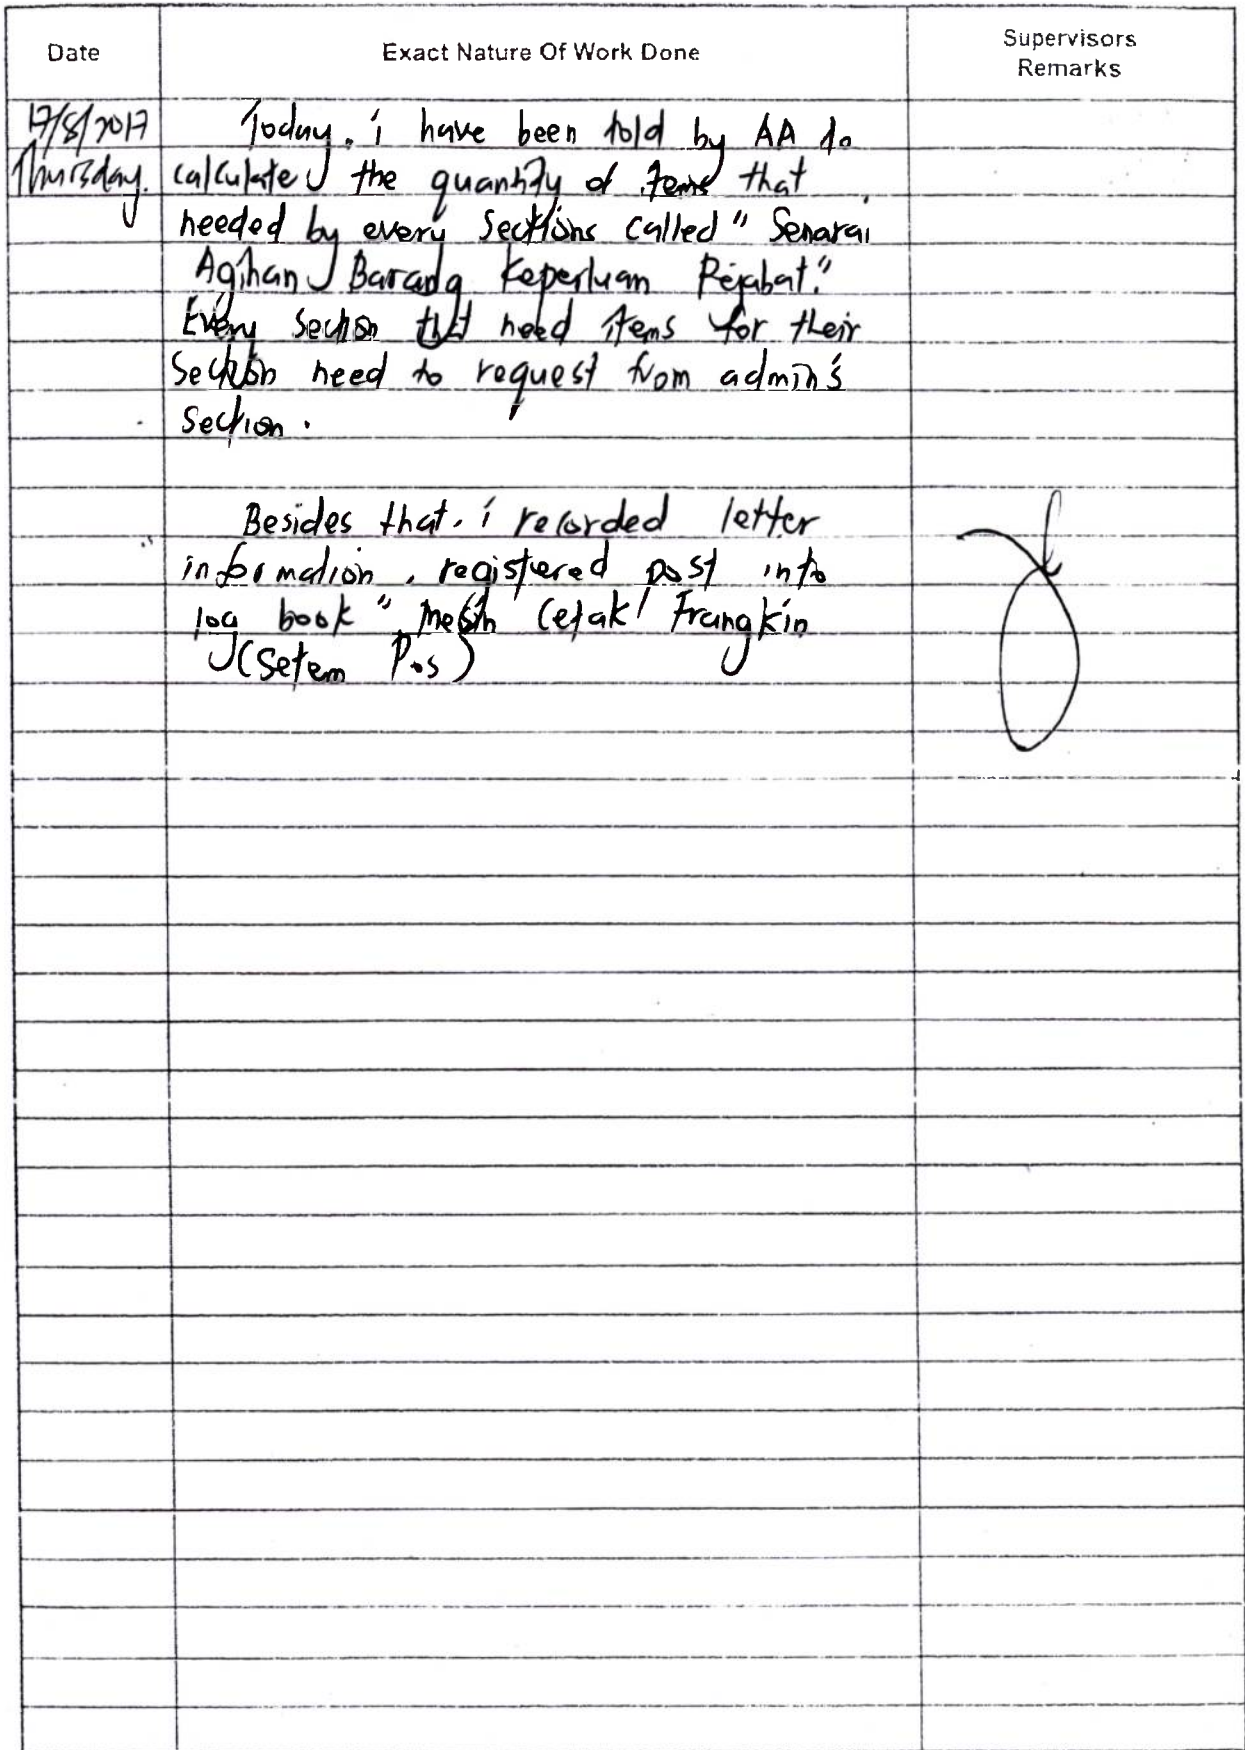 Date
Exact Nature Of Work Done
Supervisors
Remarks
17/8/2017
Thursday.
Today, i have been told by AA to
calculate the quantity of items that
needed by every sections called " Senarai
Agihan Barang Keperluan Pejabat."
Every section that need items for their
section need to request from admin's
section.
Besides that, i recorded letter
information, registered post into
log book " Mesin Cetak Frangkin
(Setem Pos)